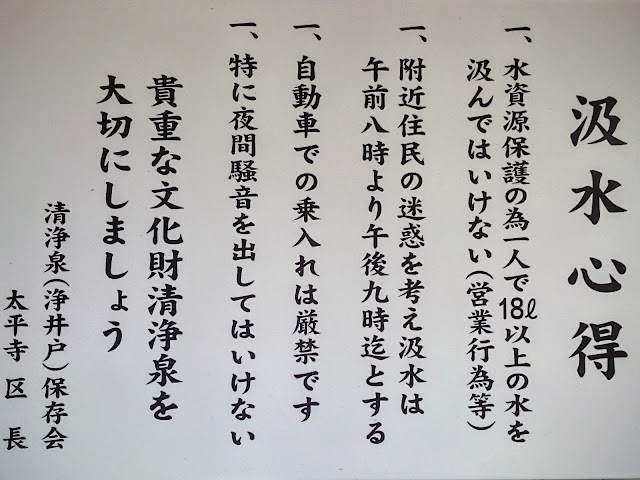 汲水心得
一、水資源保護の為一人で18ℓ以上の水を
汲んではいけない(営業行為等)
一、附近住民の迷惑を考え汲水は
午前八時より午後九時迄とする
一、自動車での乗入れは厳禁です
一、特に夜間騒音を出してはいけない
貴重な文化財清浄泉を
大切にしましょう
清浄泉(浄井戸)保存会
太平寺区長